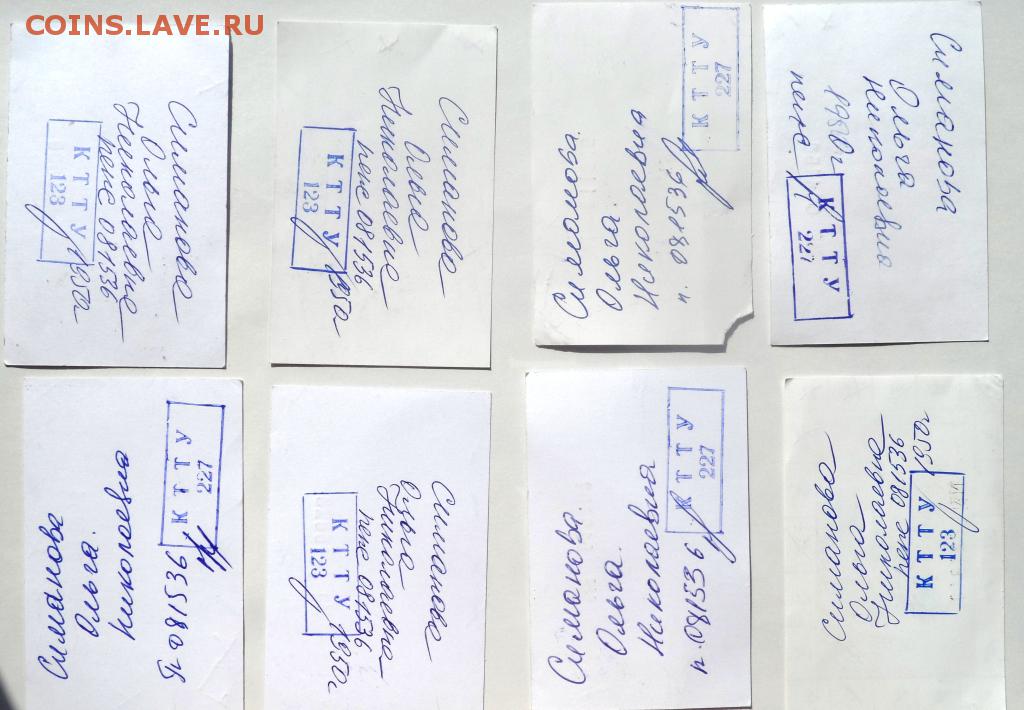 COINS.LAVE.RU
Симанова
Ольга
Николаевна
пенс 081536
1950г
КТТУ
123
Симанова
Ольга
Николаевна
пенс 081536
1950г
КТТУ
123
Симонова.
Ольга.
Николаевна
п. 081536
КТТУ
227
Симанова
Ольга
Николаевна
1950г
пенс
КТТУ
227
Симанова
Ольга.
Николаевна
П 081536
КТТУ
227
Симанова
Ольга
Николаевна
пенс 081536
1950г
КТТУ
123
Симонова.
Ольга.
Николаевна
п. 081536
КТТУ
227
Симанова
Ольга
Николаевна
пенс 081536
1950г
КТТУ
123